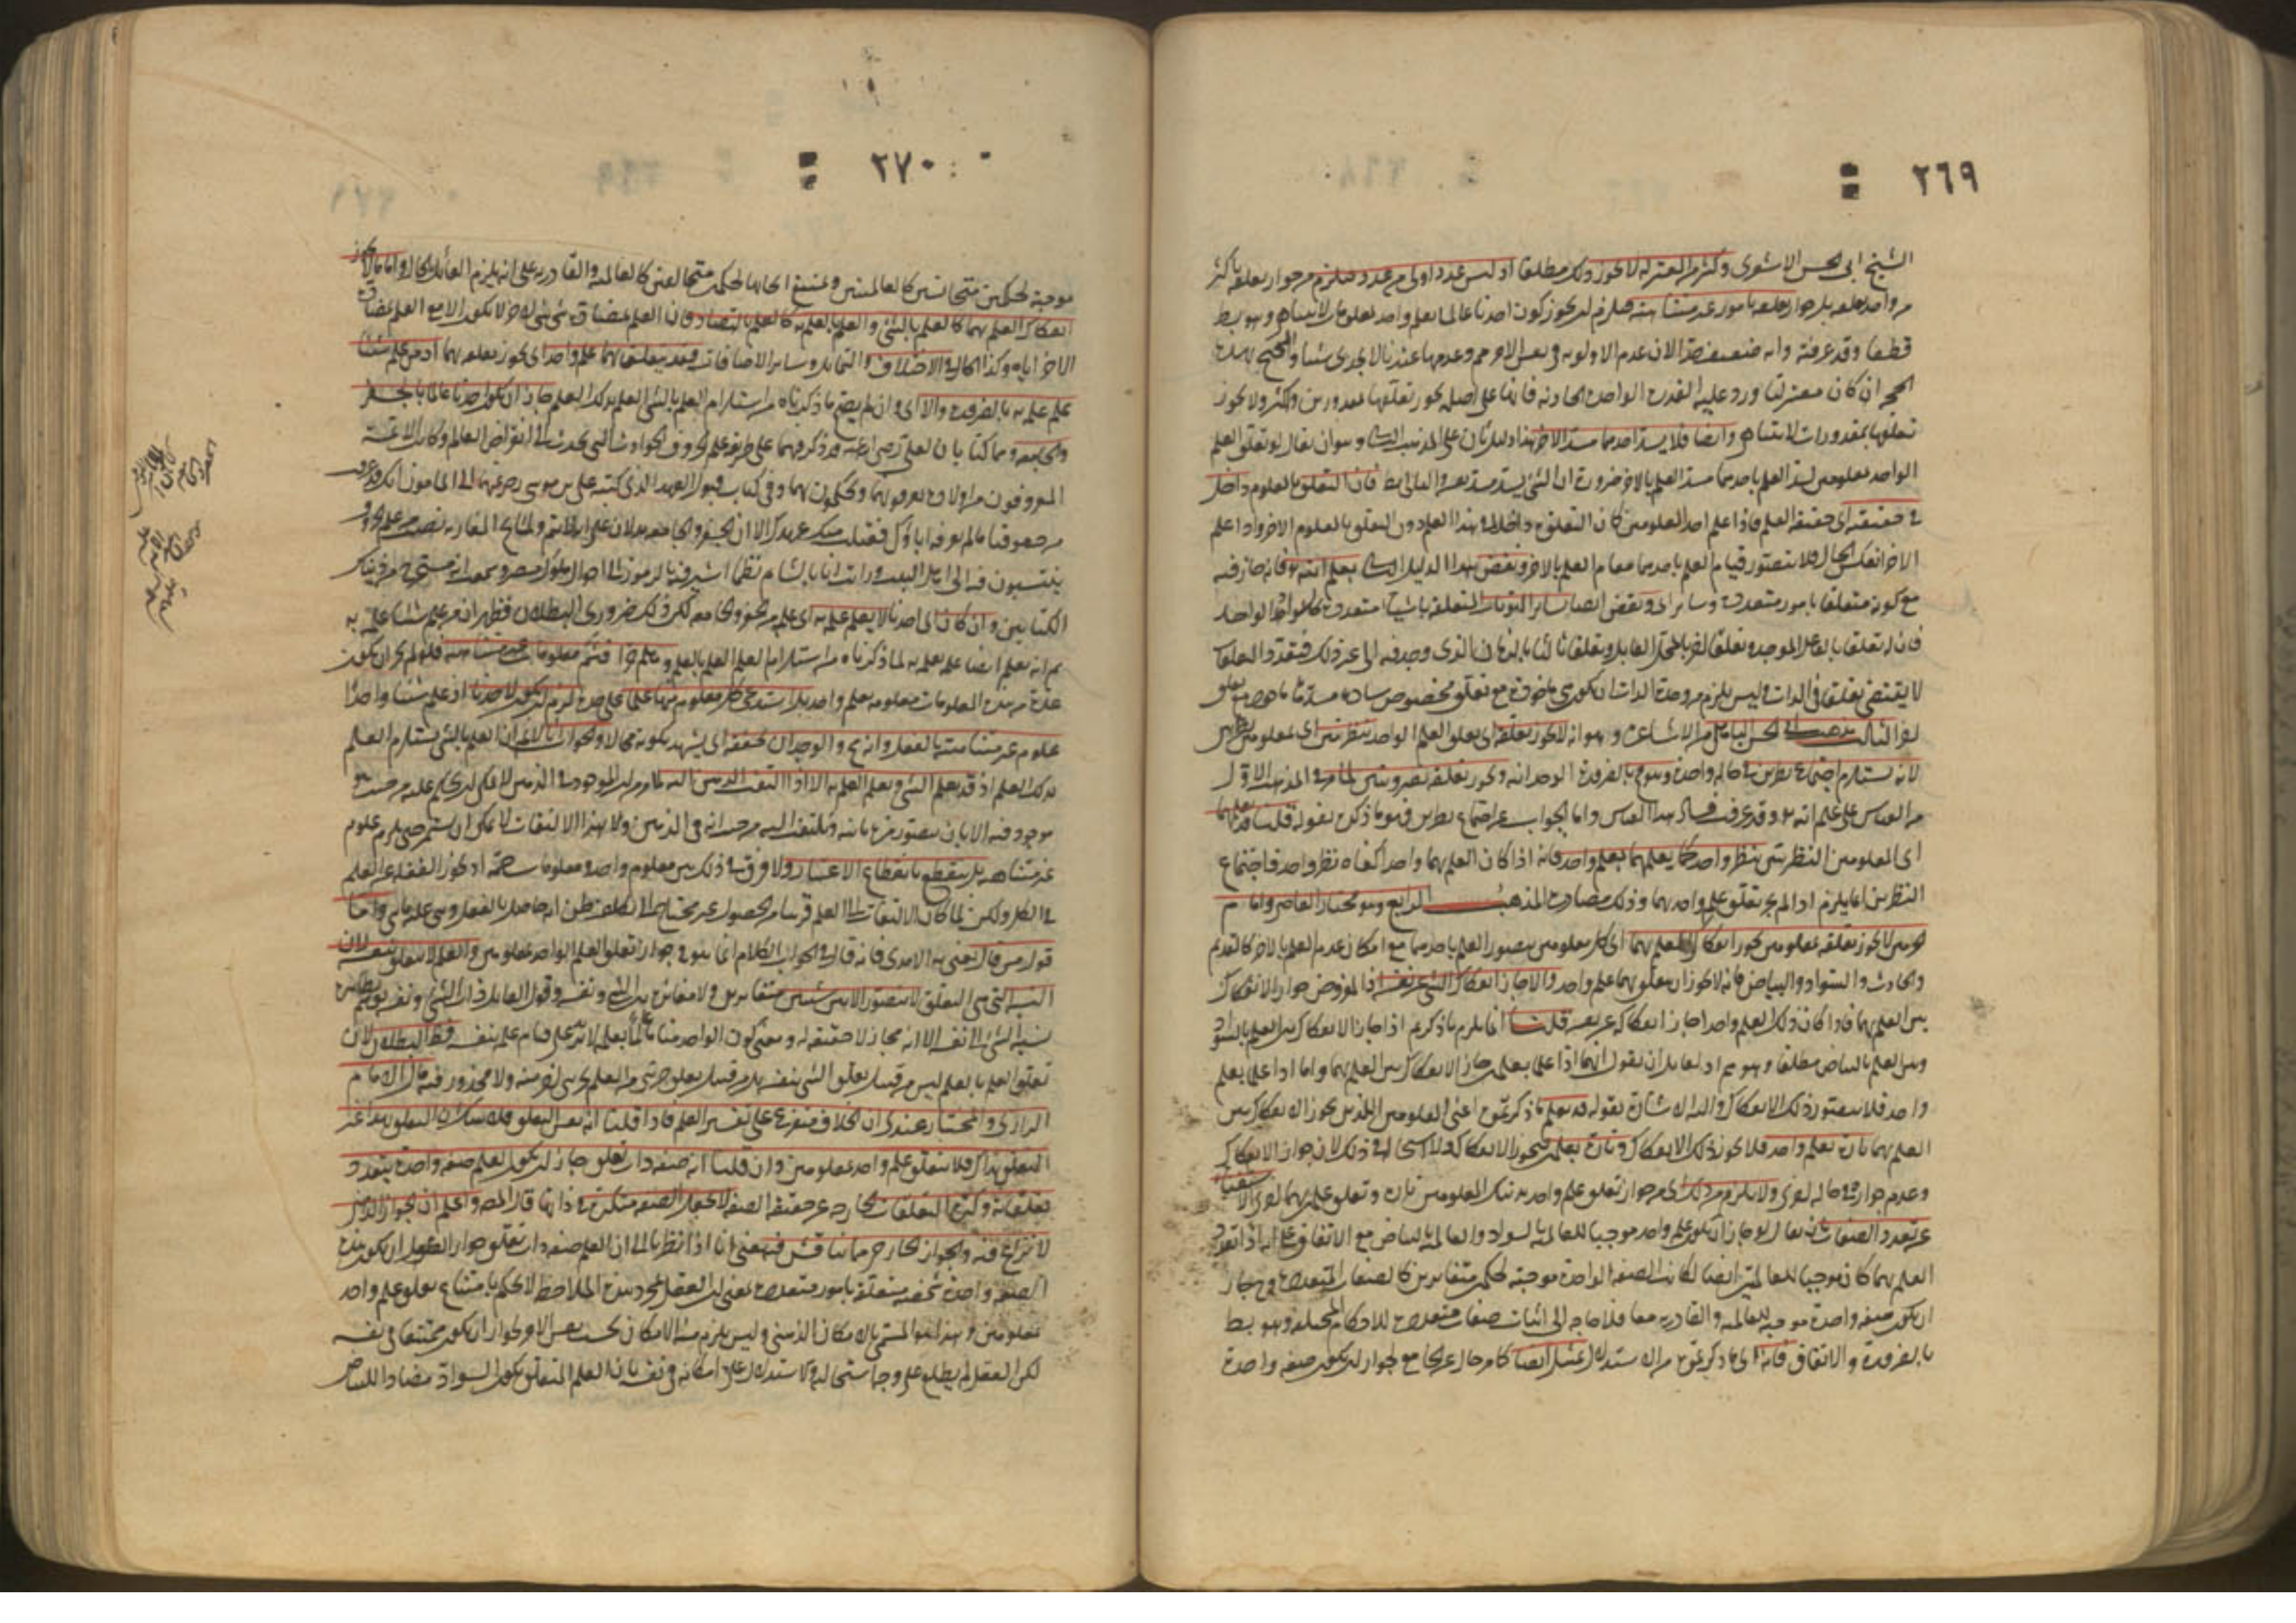 ٢٦٩
الشيخ ابى الحسن الاشعرى وكثير من المعتزلة لا يجوز ذلك مطلقا اذ ليس عدد اولى من عدد فيلزم من جواز تعلقه باكثر
من واحد تعلقه بل جواز تعلقه بامور غير متناهية فيلزم ان يجوز كون احدنا عالما بعلم واحد بمعلومات لا تتناهى وهو بط
قطعا وقد عرفته وانه ضعيف جدا لان عدم الاولوية فى نفس الامر مم وعدمها عندنا لا يجدى شيئا والمحتج بهذه
الحجة ان كان معتزليا ورد عليه القدرة الواحدة الحادثة فانها على اصله يجوز تعلقها بمقدورين واكثر ولا يجوز
تعلقها بمقدورات لا تتناهى وايضا فلا يسد احدهما مسد الاخر هذا دليل ثان على المذهب الثانى وهو ان يقال لو تعلق العلم
الواحد بمعلومين لسد العلم باحدهما مسد العلم بالاخر ضرورة ان الشئ يسد مسد نفسه والتالى بط فان التعلق بالمعلوم داخل
فى حقيقته اى حقيقة العلم فاذا علم احد المعلومين كان التعلق به داخلا فى هذا العلم دون التعلق بالمعلوم الاخر واذا علم
الاخر انعكس الحال فلا يتصور قيام العلم باحدهما مقام العلم بالاخر ونقض هذا الدليل الثانى بعلم الله تع فانه جاز فيه
مع كونه متعلقا بامور متعددة وسائر اى ونقض ايضا بسائر الهويات المتعلقة باشياء متعددة كالسواد الواحد
فان له تعلقا بالفاعل الموجد وتعلقا اخر بالمحل القابل وتعلقا ثالثا بالزمان الذى وجد فيه الى غير ذلك فتعدد التعلقات
لا يقتضى تعلقا فى الذات وليس يلزم من وحدة الذات ان يكون ماخوذة مع تعلق مخصوص سادة مسدها ماخوذة مع تعلق
اخر الثالث مذهب ابى الحسن الباهلى من الاشاعرة وهو انه لا يجوز تعلقه اى تعلق العلم الواحد بنظريين اى بمعلومين نظريين
لانه يستلزم اجتماع نظرين فى حالة واحدة وهو مح بالضرورة الوجدانية ويجوز تعلقه بضروريين لما مر فى المذهب الاول
من القياس على علم الله تع وقد عرفت فساد هذا القياس واما الجواب عن اجتماع نظرين فهو ما ذكره بقوله قلنا قد نعلمهما
اى المعلومين النظريين بنظر واحد كما يعلمهما بعلم واحد فانه اذا كان العلم بهما واحدا كفاه نظر واحد فاجتماع
النظرين انما يلزم اذا لم يجز تعلق علم واحد بهما وذلك مصادرة المذهب الرابع وهو مختار القاضى وامام
الحرمين لا يجوز تعلقه بمعلومين يجوز انفكاك العلم بهما اى كل معلومين يتصور العلم باحدهما مع امكان عدم العلم بالاخر كالقديم
والحادث والسواد والبياض فانه لا يجوز ان يتعلق بهما علم واحد والا جاز انفكاك الشئ عن نفسه اذ المفروض جواز الانفكاك
بين العلم بهما فاذا كان ذلك العلم واحدا جاز انفكاكه عن نفسه قلنا انما يلزم ما ذكرتم اذا جاز الانفكاك بين العلم بالسواد
وبين العلم بالبياض مطلقا وهو مم اذ لقائل ان يقول انهما اذا علما بعلمين جاز الانفكاك بين العلم بهما واما اذا علما بعلم
واحد فلا يتصور ذلك الانفكاك والى ذلك اشار بقوله قد يعلم ما ذكرتموه اعنى المعلومين اللذين يجوز الانفكاك بين
العلم بهما تارة بعلم واحد فلا يجوز ذلك الانفكاك وتارة بعلمين فيجوز الانفكاك ولا استحالة فى ذلك لان جواز الانفكاك
وعدم جوازه فى حالة اخرى ولا يلزم من ذلك اى من جواز تعلق علم واحد بذينك المعلومين تارة وتعلق علمين بهما اخرى الاستغناء
عن تعدد الصفات بان يقال لو جاز ان يكون علم واحد موجبا للعالمية بالسواد والعالمية بالبياض مع الاتفاق على انه اذا تعدد
العلم بهما كان موجبا للعالميتين ايضا لكانت الصفة الواحدة موجبة لحكمين متغايرين كالصفات المتعددة فيجوز
ان يكون صفة واحدة موجبة للعالمية والقادرية معا فلا حاجة الى اثبات صفات متعددة للاحكام المختلفة وهو بط
بالضرورة والاتفاق فانه اى ما ذكرتموه من الاستدلال تمثيل ايضا كما مر خال عن الجامع لجواز ان يكون صفة واحدة
٢٧٠
موجبة لحكمين متجانسين كالعالميتين ويمتنع ايجابها لحكمين متخالفين كالعالمية والقادرية على انه يلزم القائل بالحال واما ما لا يجوز
انفكاك العلم بهما كالعلم بالشئ والعلم بالعلم به كالعلم بالتضاد فان العلم بمضادة شئ لشئ اخر لا يكون الا مع العلم بمضادة
الاخر اياه وكذا الحال فى الاختلاف والتماثل وسائر الاضافات فقد يتعلق بهما علم واحد اى يجوز تعلقه بهما اذ من علم شيئا
علم علمه به بالضرورة والا اى وان لم يصح ما ذكرناه من استلزام العلم بالشئ العلم بذلك العلم جاز ان يكون احدنا عالما بالجفر
والجامعة وهما كتابان لعلى رضى الله عنه قد ذكر فيهما على طريقة علم الحروف الحوادث التى تحدث الى انقراض العالم وكانت الائمة
المعروفون من اولاده يعرفونهما ويحكمون بهما وفى كتاب قبول العهد الذى كتبه على بن موسى رضى الله عنهما الى المامون انك قد عرفت
من حقوقنا ما لم يعرفه اباؤك فقبلت منك عهدك الا ان الجفر والجامعة يدلان على انه لا يتم ولمشايخ المغاربة نصيب من علم الحروف
ينتسبون فيه الى اهل البيت ورايت انا بالشام نظما اشير فيه بالرموز الى احوال ملوك مصر وسمعت انه مستخرج من ذينك
الكتابين وان كان اى احدنا لا يعلم علمه به اى علمه بالجفر والجامعة لكن ذلك ضرورى البطلان فظهر ان من علم شيئا علم علمه به
ثم انه يعلم ايضا علمه بعلمه به لما ذكرناه من استلزام العلم العلم بالعلم وهلم جرا فثم معلومات غير متناهية فلو لم يجز ان يكون
عدة من هذه المعلومات معلومة بعلم واحد بل استدعى كل معلوم منها علما على حدة لزم ان يكون لاحدنا اذا علم شيئا واحدا
علوم غير متناهية بالفعل وانه مح والوجدان يحققه اى يشهد بكونه محالا والجواب انا لا نم ان العلم بالشئ يستلزم العلم
بذلك العلم اذ قد يعلم الشئ ويعلم العلم به الا اذا التفت الذهن اليه لما مر من ان الموجود فى الذهن لا يمكن ان يحكم عليه من حيث هو
موجود فيه الا بان يتصور مرة ثانية ويلتفت اليه من حيث انه فى الذهن ولا بهذا الالتفات لا يمكن ان يستمر حتى يلزم علوم
غير متناهية بل ينقطع بانقطاع الاعتبار ولا فرق فى ذلك بين معلوم واحد ومعلومات جمة اذ يجوز الغفلة عن العلم
فى الكل ولكن لما كان الالتفات الى العلم قريبا من الحصول غير محتاج الى تكلف ظن انه حاصل بالفعل وبنى عليه ما بنى واما
قول من قال يعنى به الامدى فانه قال فى الجواب الكلام انما هو فى جواز تعلق العلم الواحد بمعلومين والعلم لا يتعلق بنفسه لان
النسبة التى هى التعلق لا تتصور الا بين شيئين متغايرين ولا تغاير بين الشئ ونفسه وقول القائل ذات الشئ ونفسه يوهم بظاهره
نسبة الشئ الى نفسه الا انه مجاز لا حقيقة له ومعنى كون الواحد منا عالما بعلمه لا يزيد على قيام علمه بنفسه فظ البطلان لان
تعلق العلم بالعلم ليس من قبيل تعلق الشئ بنفسه بل من قبيل تعلق جزئى من العلم بجزئى اخر منه ولا محذور فيه قال الامام
الرازى والمختار عندى ان الخلاف متفرع على تفسير العلم فاذا قلنا انه نفس التعلق فلا شك ان التعلق بهذا غير
التعلق بذاك فلا يتعلق علم واحد بمعلومين وان قلنا انه صفة ذات تعلق جاز ان يكون العلم صفة واحدة يتعدد
تعلقاته وكثرة التعلقات الخارجة عن حقيقة الصفة لا تجعل الصفة متكثرة فى ذاتها قال المص واعلم ان الجواز الذهنى
لا نزاع فيه والجواز الخارجى مما يناقش فيه يعنى انا اذا نظرنا الى ان العلم صفة ذات تعلق جوز العقل ان يكون هذه
الصفة واحدة شخصية متعلقة بامور متعددة بمعنى ان العقل بمجرد هذه الملاحظة لا يحكم بامتناع تعلق علم واحد
بمعلومين وهذا هو المسمى بالامكان الذهنى وليس يلزم منه الامكان بحسب نفس الامر لجواز ان يكون ممتنعا فى نفسه
لكن العقل لم يطلع على وجه استحالته والاستدلال على امكانه فى نفسه بان العلم المتعلق بكون السواد مضادا للبياض